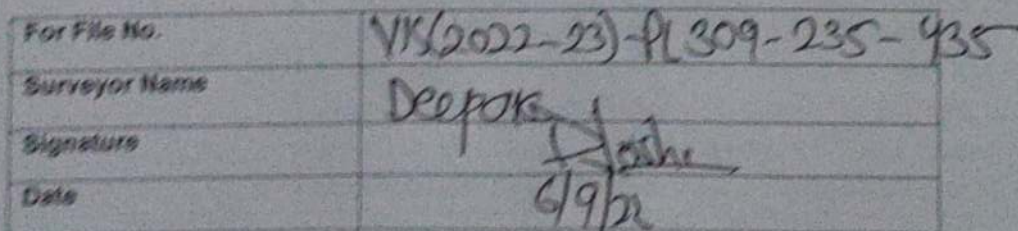 For File No. VIS(2022-23)-PL309-235-435
Surveyor Name Deepak
Signature Joshi
Date 6/9/22